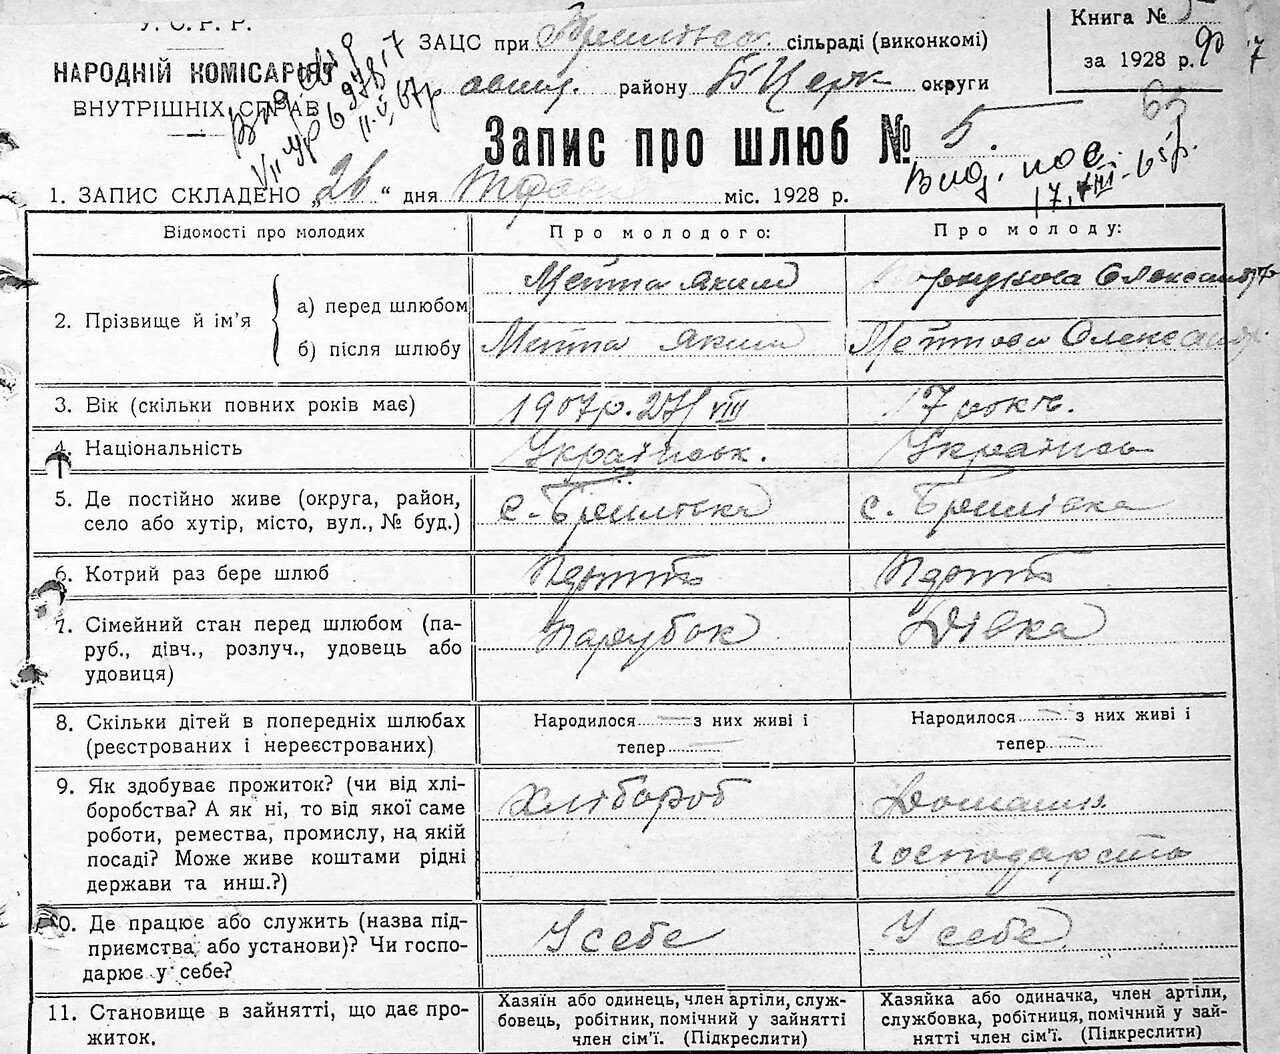 У. С. Р. Р.
НАРОДНІЙ КОМІСАРІЯТ
ВНУТРІШНІХ СПРАВ
ЗАЦС при сільраді (виконкомі)
району Б Церк округи
Книга № 5
за 1928 р.
Запис про шлюб № 5.
Вид. 
17.VIII-
1. ЗАПИС СКЛАДЕНО „26“ дня травня міс. 1928 р.
Відомості про молодих Про молодого: Про молоду:
2. Прізвище й ім'я
а) перед шлюбом Яким Олександр
б) після шлюбу Яким Олександр
3. Вік (скільки повних років має) 1907р. 27/VIII 17 років.
4. Національність Українськ. Українськ
5. Де постійно живе (округа, район, село або хутір, місто, вул., № буд.) с. Бреилівка с. Бреилівка
6. Котрий раз бере шлюб
7. Сімейний стан перед шлюбом (па-
руб., дівч., розлуч., удовець або
удовиця) Парубок Дівка
8. Скільки дітей в попередніх шлюбах
(реєстрованих і нереєстрованих)
Народилося — з них живі і
тепер —
Народилося — з них живі і
тепер —
9. Як здобуває прожиток? (чи від хлі-
боробства? А як ні, то від якої саме
роботи, ремества, промислу, на якій
посаді? Може живе коштами рідні
держави та инш.?)
Хлібороб
Домашн
господарств
10. Де працює або служить (назва під-
приємства, або установи)? Чи госпо-
дарює у себе?
У себе
У себе
11. Становище в зайнятті, що дає про-
житок.
Хазяїн або одинець, член артіли, служ-
бовець, робітник, помічний у зайнятті
член сім'ї. (Підкреслити)
Хазяйка або одиначка, член артіли,
службовка, робітниця, помічний у зай-
нятті член сім'ї. (Підкреслити)